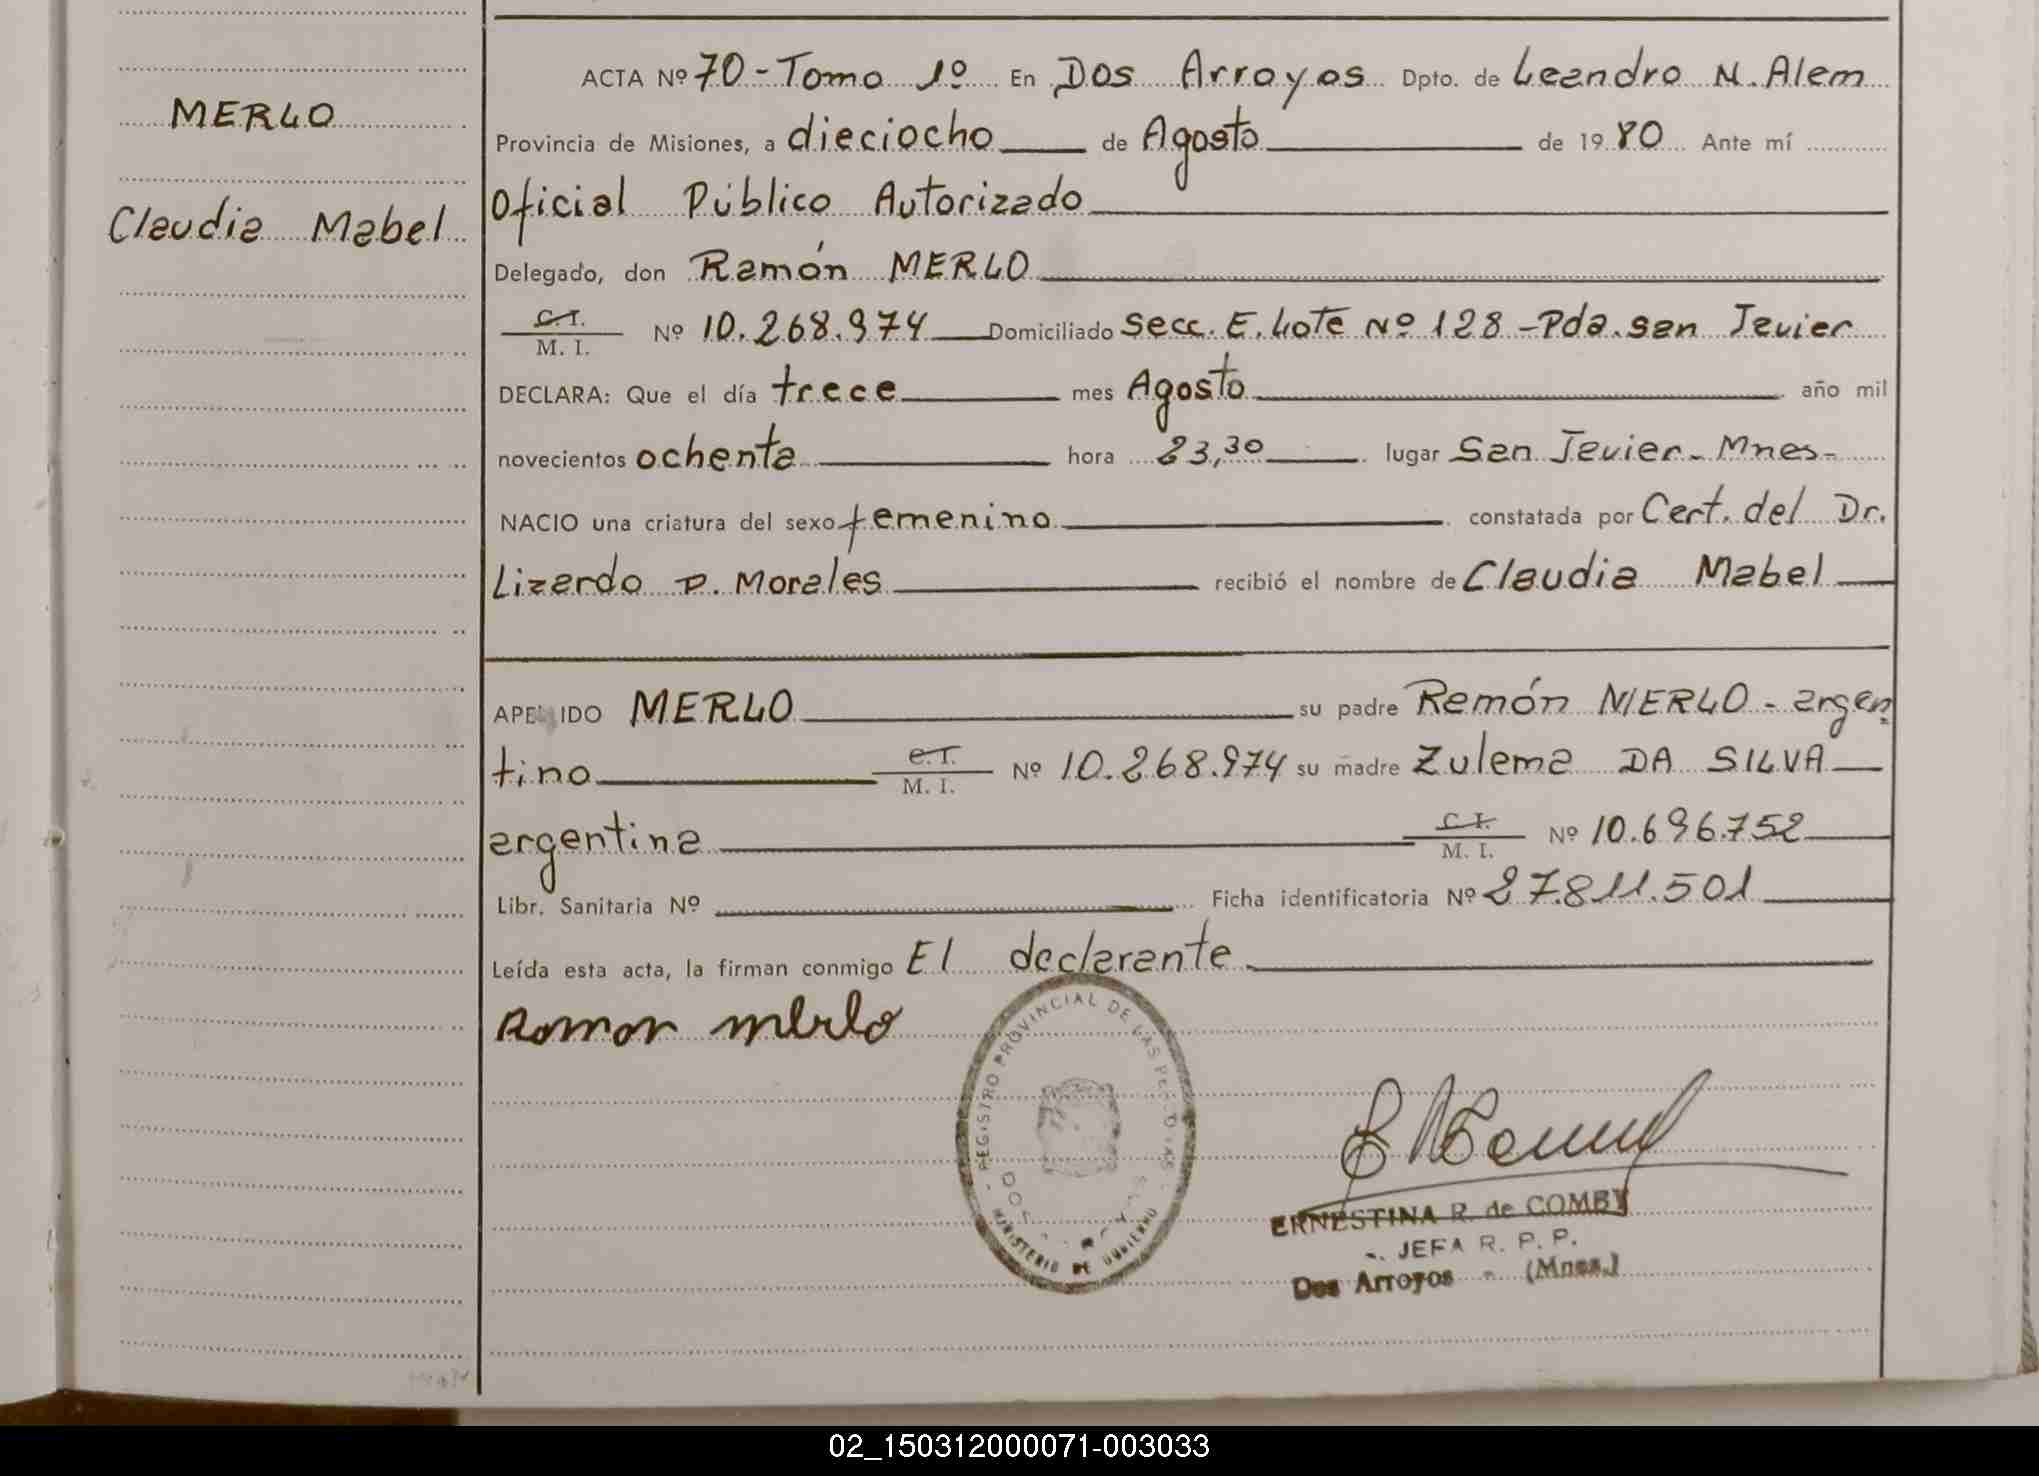 MERLO
Claudia Mabel
ACTA Nº 70 - Tomo 1º En Dos Arroyos Dpto. de Leandro N. Alem
Provincia de Misiones, a dieciocho de Agosto de 1980 Ante mí
Oficial Público Autorizado
Delegado, don Ramón MERLO
C. I.
M. I. Nº 10.268.974 Domiciliado Secc. E. Lote Nº 128 - Pda. San Javier
DECLARA: Que el día trece mes Agosto año mil
novecientos ochenta hora 23,30 lugar San Javier - Mnes -
NACIO una criatura del sexo femenino constatada por Cert. del Dr.
Lizardo P. Morales recibió el nombre de Claudia Mabel
APELLIDO MERLO su padre Ramón MERLO - argen
tino C. I. M. I. Nº 10.268.974 su madre Zulema DA SILVA
argentina C. I. M. I. Nº 10.696.752
Libr. Sanitaria Nº Ficha identificatoria Nº 27.811.501
Leída esta acta, la firman conmigo El declarante
Ramon merlo
REGISTRO PROVINCIAL DE LAS PERSONAS
MINISTERIO DE GOBIERNO
ERNESTINA R. de COMBY
JEFA R. P. P.
Dos Arroyos - (Mnes.)
02_150312000071-003033